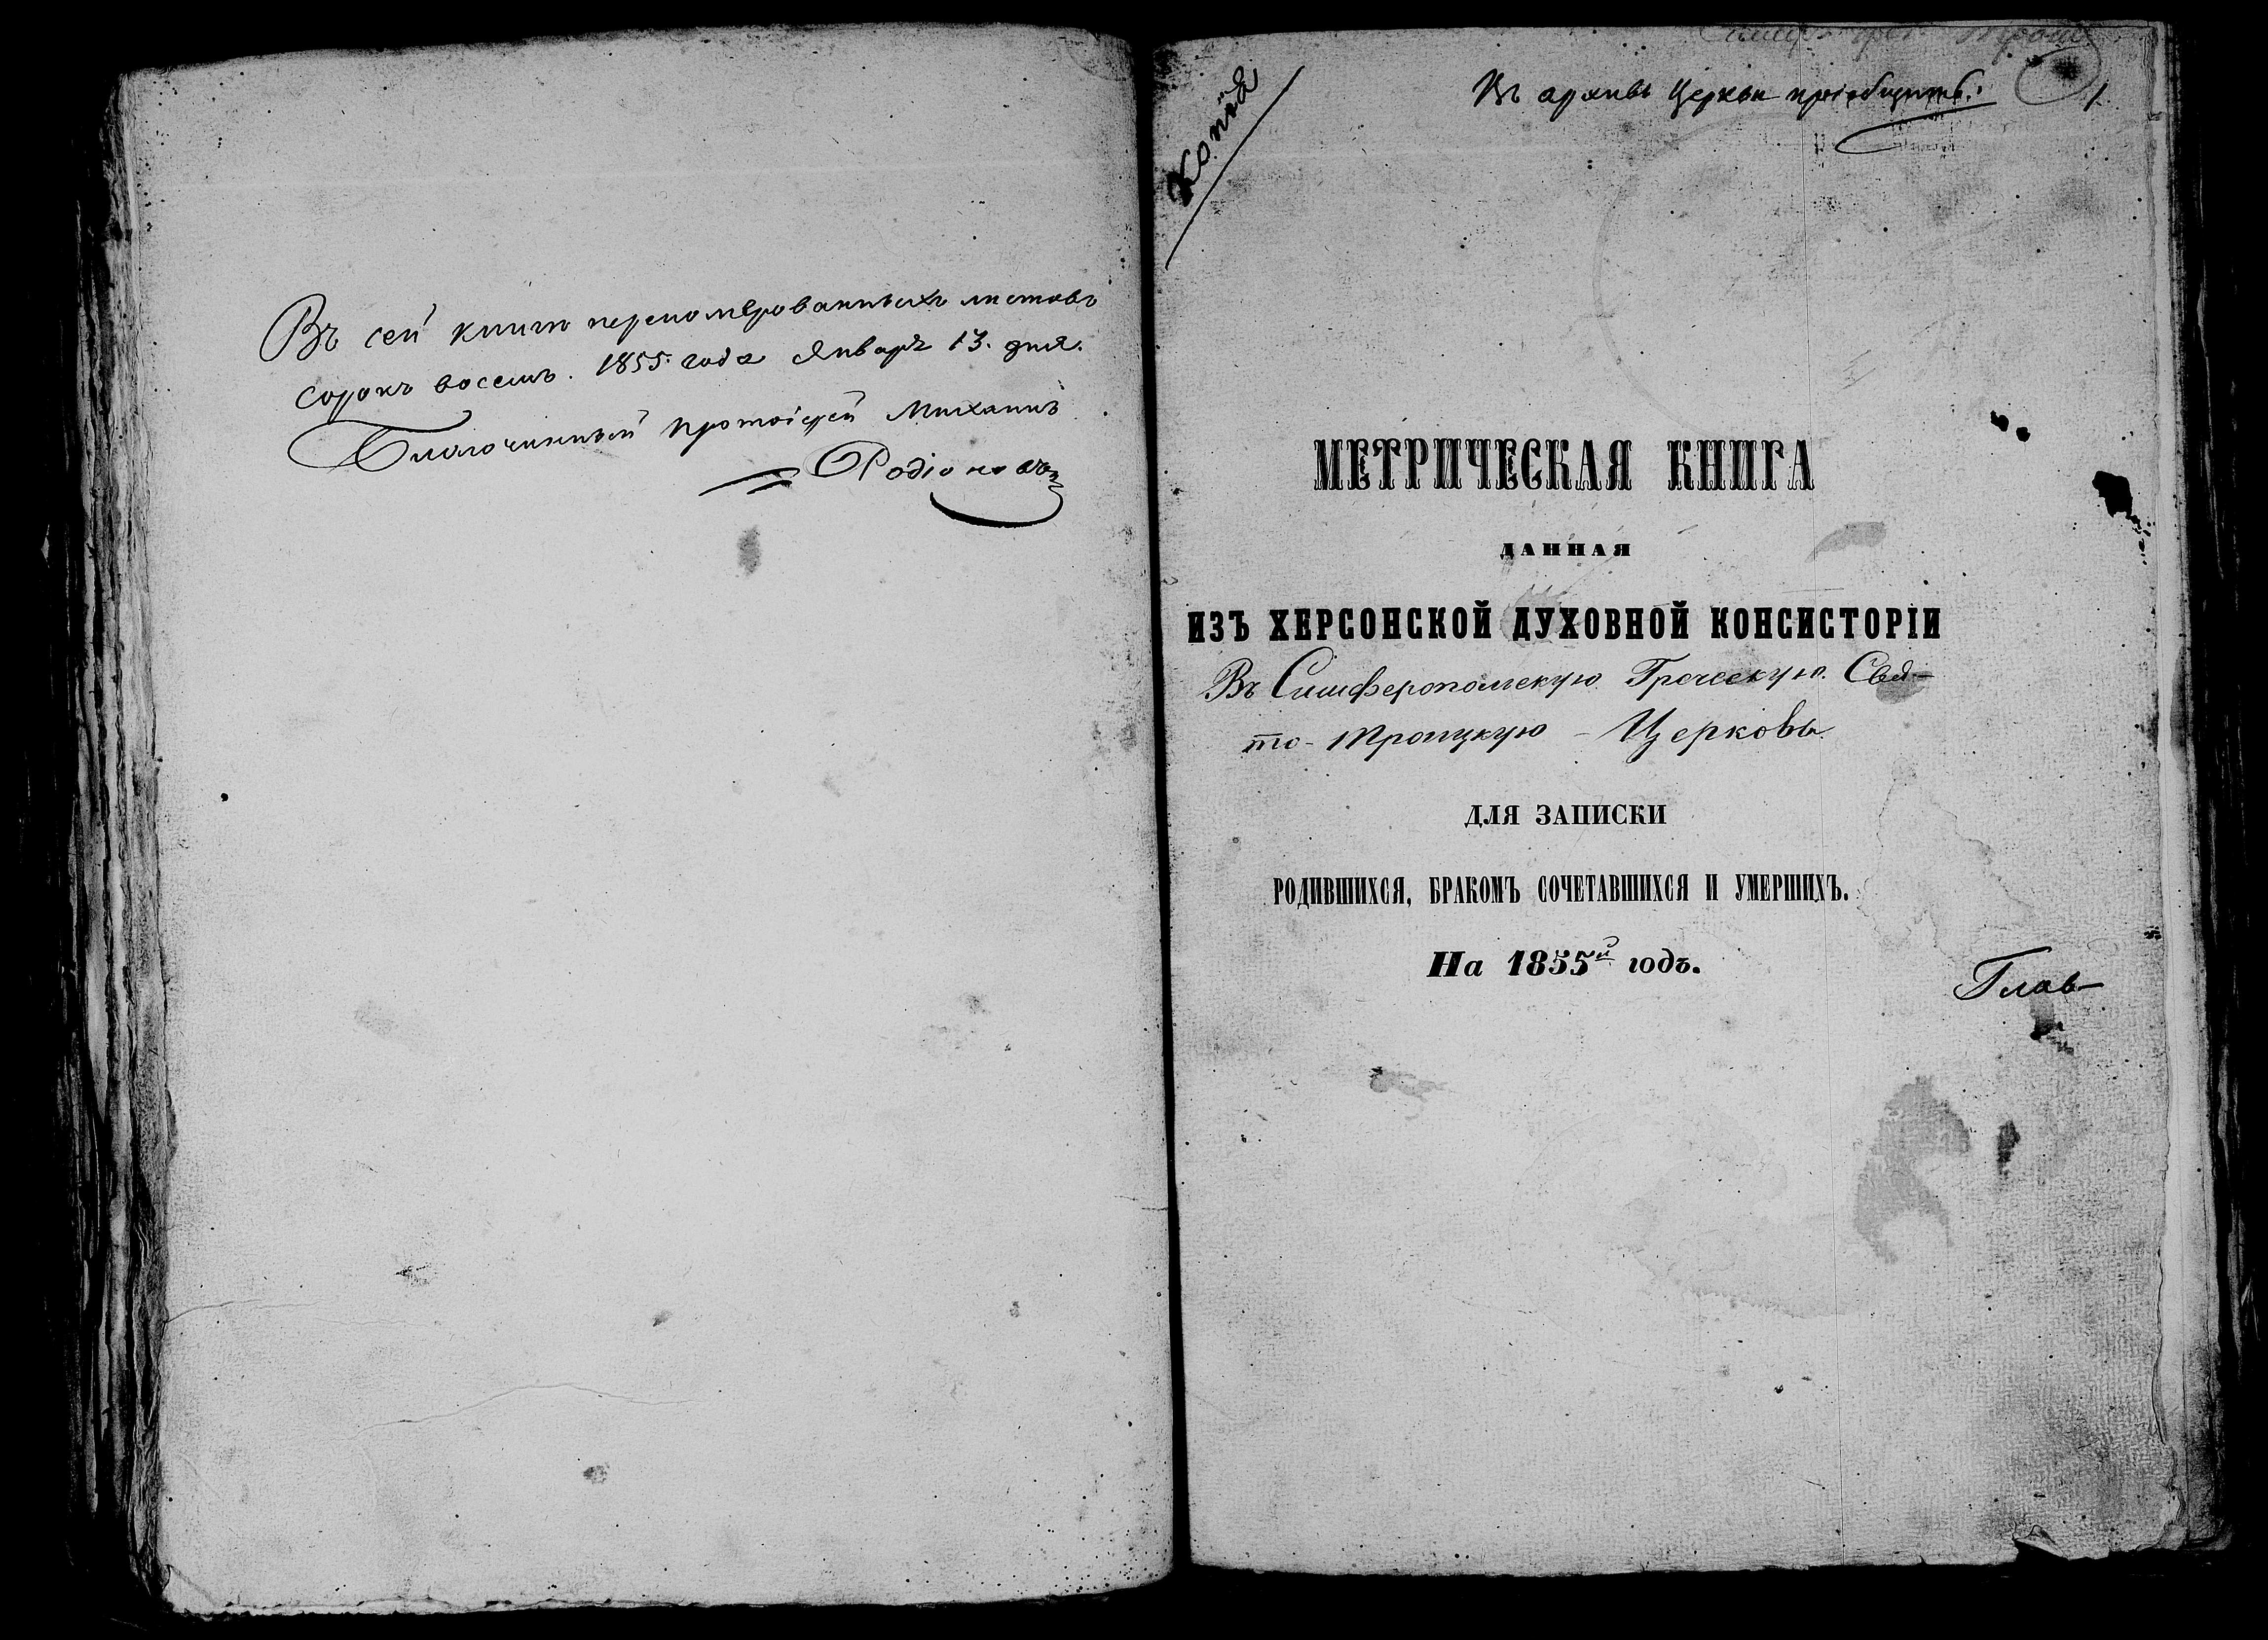 Въ сей книгѣ переномерованныхъ листовъ
сорокъ восемь. 1855. года Января 13. дня.
Благочинный Протоіерей Михаилъ
Родіоновъ
Копія
Въ архивъ Церкви пріобщить.
1
МЕТРИЧЕСКАЯ КНИГА
ДАННАЯ
ИЗЪ ХЕРСОНСКОЙ ДУХОВНОЙ КОНСИСТОРІИ
Въ Симферопольскую Греческую Свя-
то-Троицкую - Церковь
ДЛЯ ЗАПИСКИ
РОДИВШИХСЯ, БРАКОМЪ СОЧЕТАВШИХСЯ И УМЕРШИХЪ.
На 1855й годъ.
Глав-